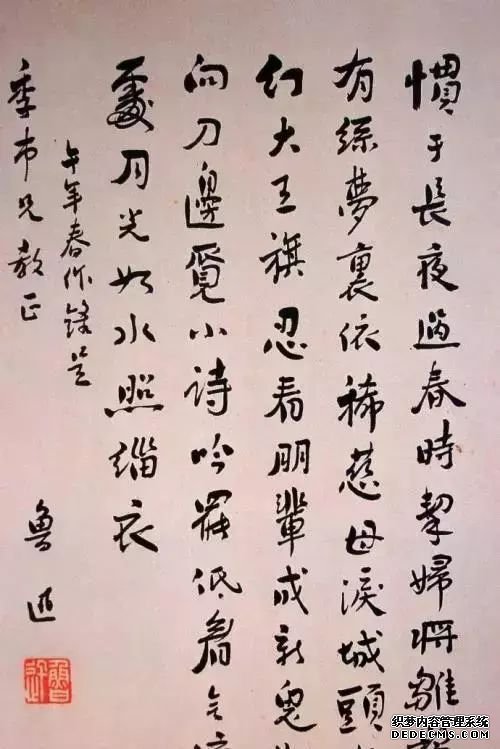 慣于長夜過春時挈婦將雛
有絲夢裏依稀慈母淚城頭
幻大王旗忍看朋輩成新鬼
向刀邊覓小詩吟罷低眉無
處月光如水照緇衣
午年春作錄呈
季市兄教正
魯迅
魯迅
织梦内容管理系统
DEDECMS.COM